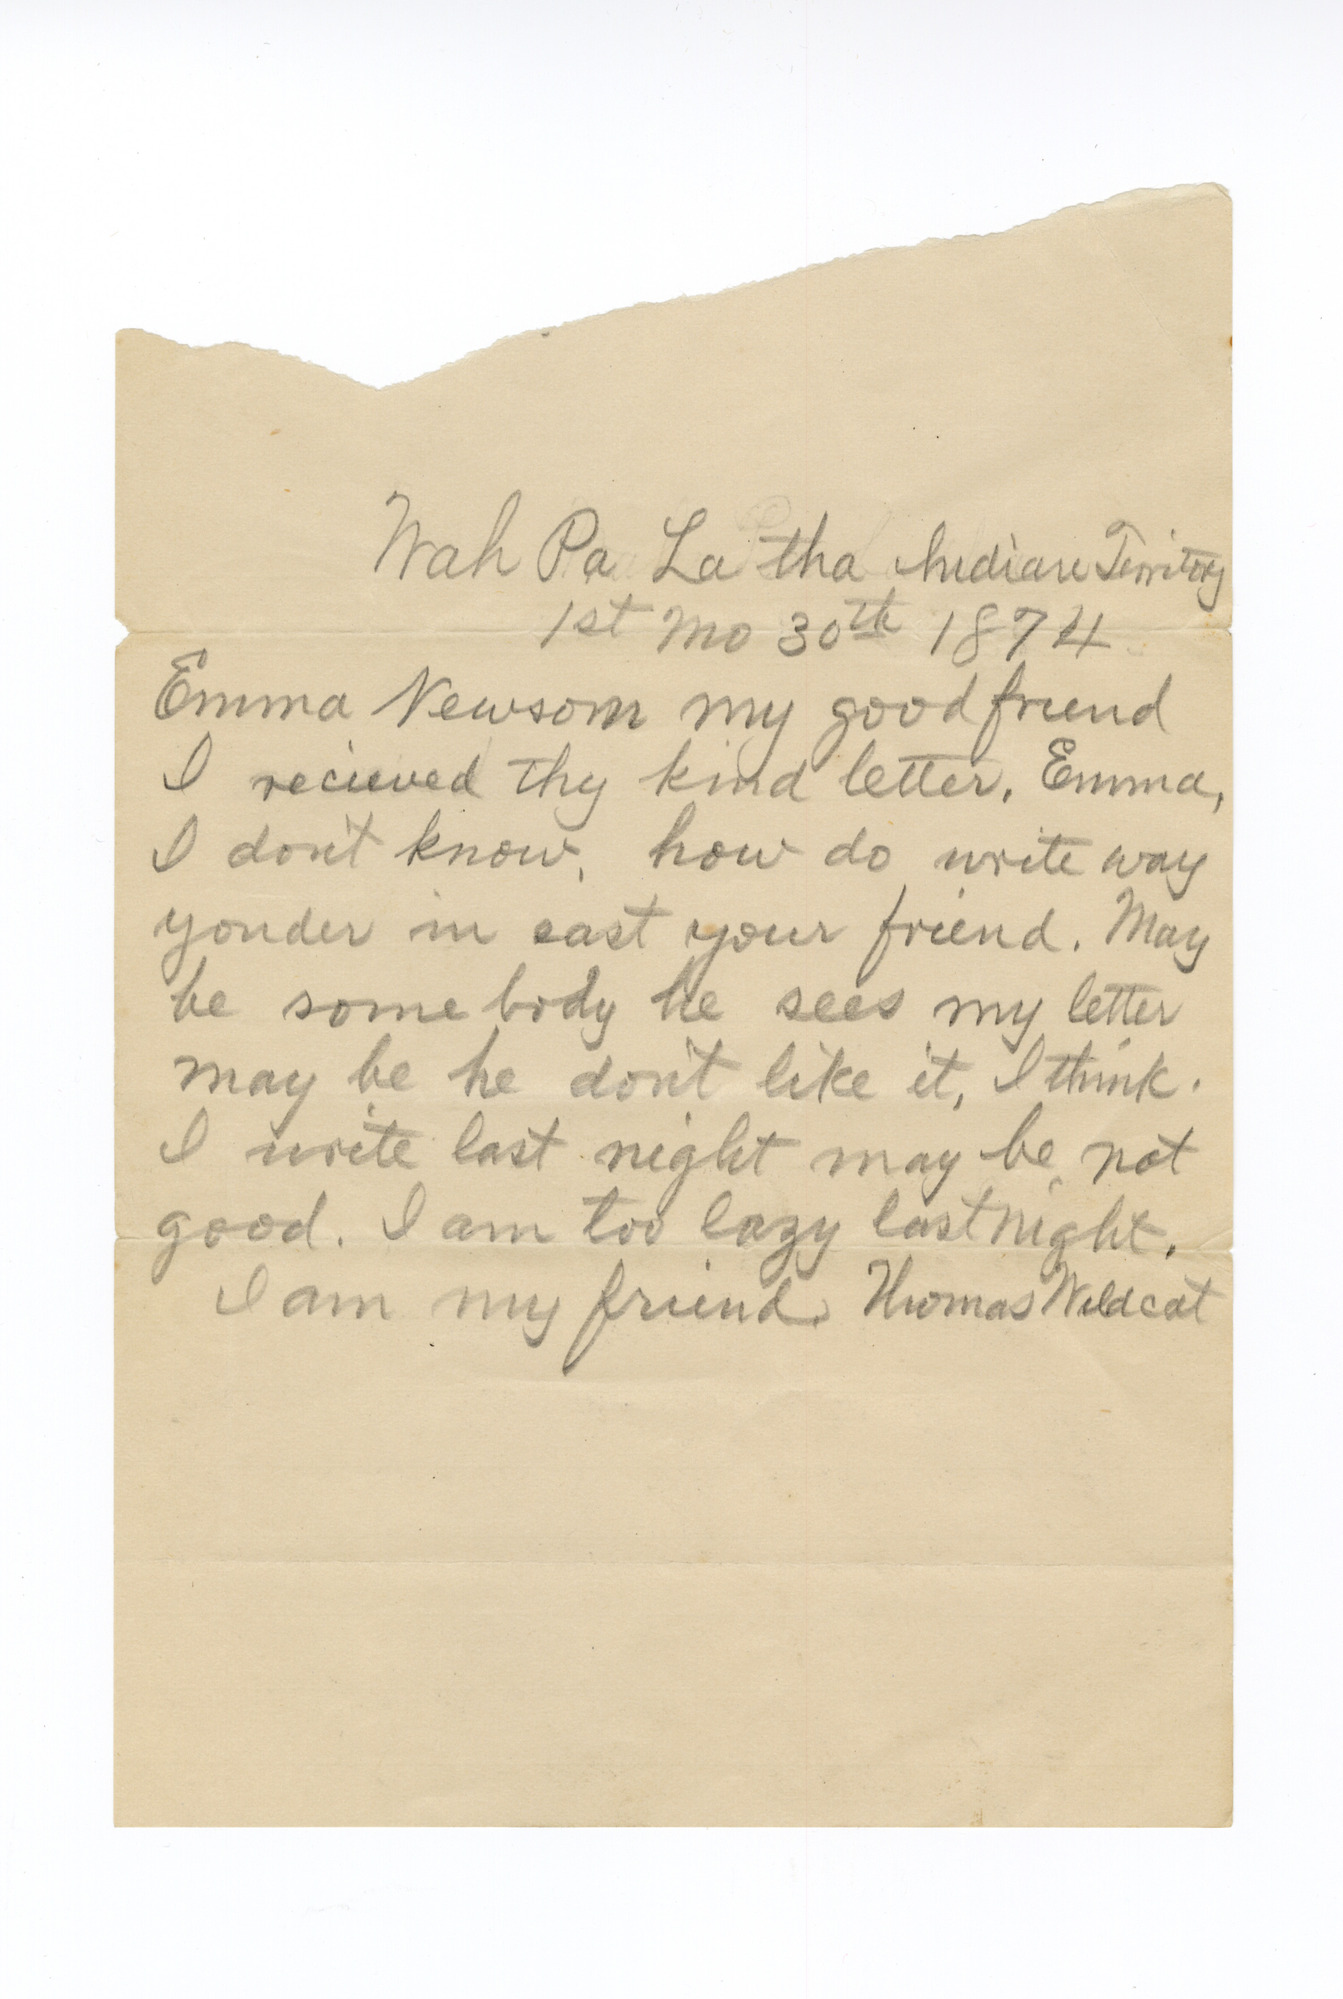 Wah Pa La tha Indian Territory
1st Mo 30th 1874
Emma Newsom my good friend
I recieved thy kind letter. Emma,
I don't know, how do write way
yonder in east your friend. May
be some body he sees my letter
may be he don't like it, I think.
I write last night may be not
good. I am too lazy last night.
I am my friend. Thomas Wildcat